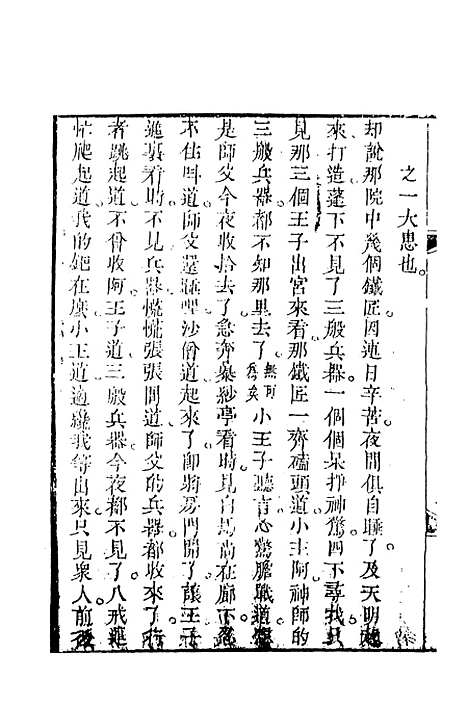 之一大患也。
却說那院中幾個鐵匠因連日辛苦夜間俱自睡了及天明起
來打造篷下不見了三般兵器一個個呆掙神驚四下尋找只
見那三個王子出宮來看那鐵匠一齊磕頭道小主阿神師的
三般兵器都不知那里去了小王子聽言心驚膽戰道想
是師父今夜收拾去了急奔暴紗亭看時見白馬尚在廊下忍
不住叫道師父還睡哩沙僧道起來了即將房門開了讓王子
進裏看時不見兵器慌慌張張問道師父的兵器都收來了行
者跳起道不曾收阿王子道三般兵器今夜都不見了八戒連
忙爬起道我的鈀在麼小王道適纔我等出來只見眾人前後